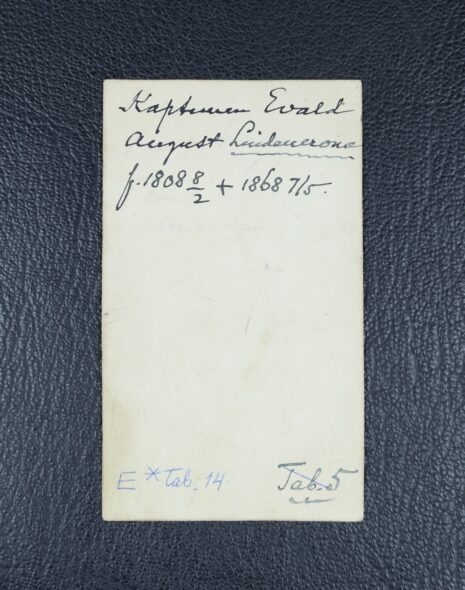 Kaptenen Evald
August Lindencrona
f. 1808 8/2 + 1868 7/5.
E * Tab. 14
Tab. 5